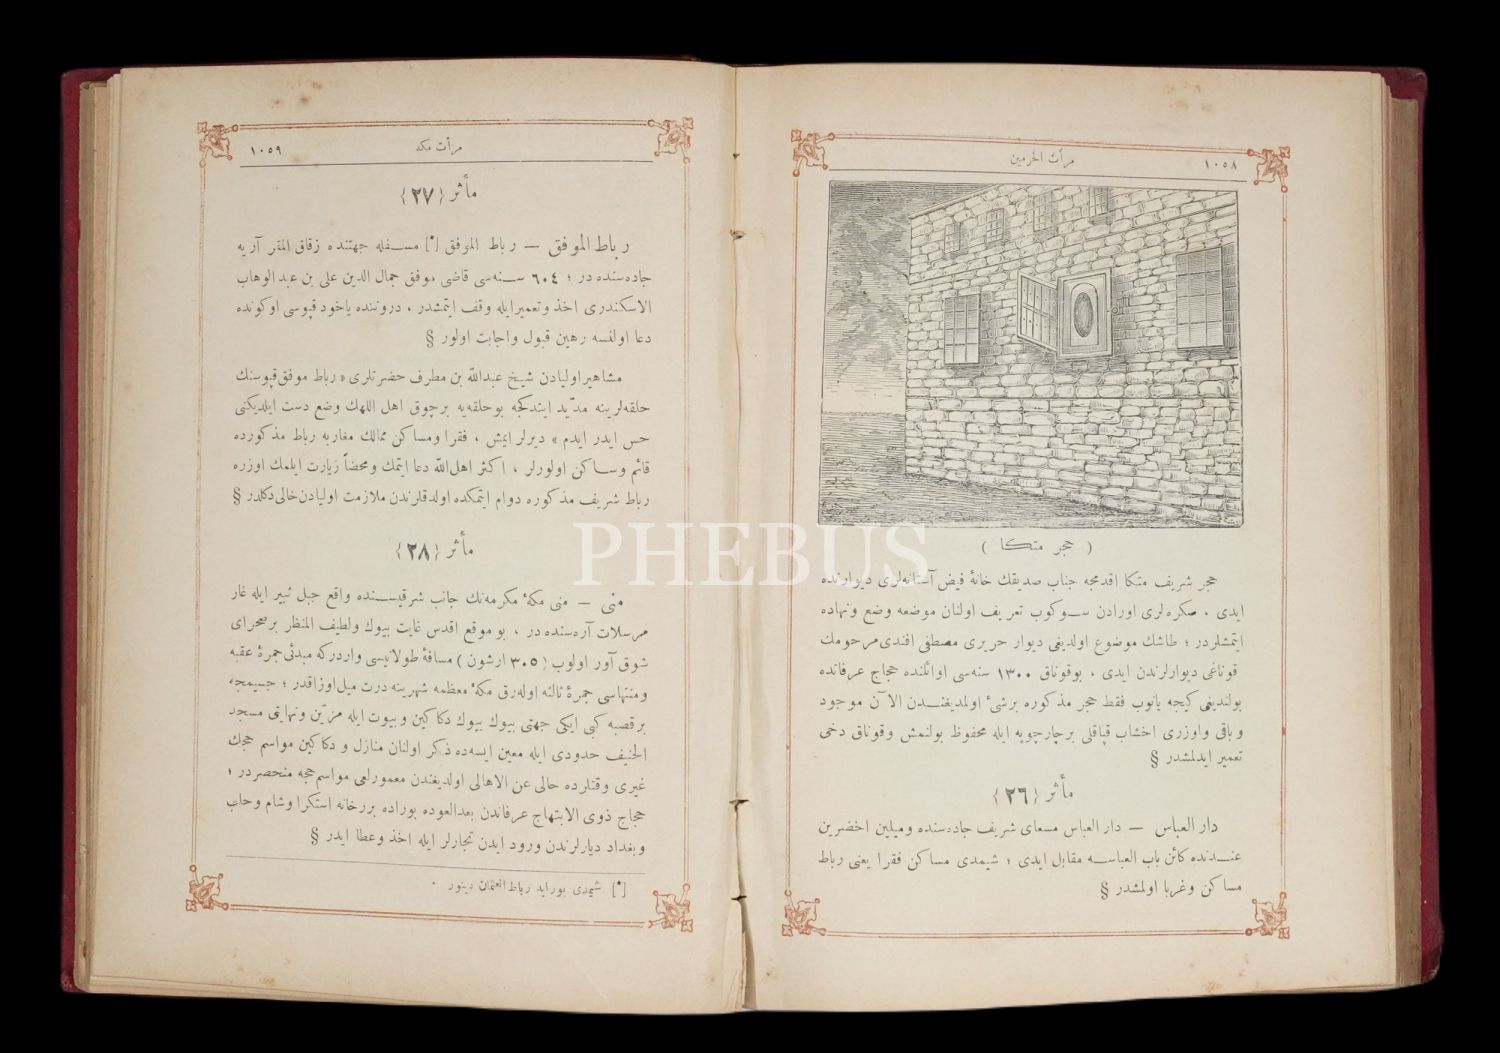 ١٠٥٨
مرأت الحرمين
( حجر متكا )
حجر شريف متكا اقدمجه جناب صديقك خانهٔ فيض آستانه‌لرى ديوارنده
ايدى ، صكره‌لرى اورادن سوكوب تعريف اولنان موضعه وضع ونهاده
ايتمشلردر ؛ طاشك موضوع اولديغى ديوار حريرى مصطفى افندى مرحومك
قوناغى ديوارلرندن ايدى ، بوقوناق ١٣٠٠ سنه‌سى اوائلنده حجاج عرفاتده
بولنديغى كيجه يانوب فقط حجر مذكوره برشئ اولمديغندن الآن موجود
و باقى واوزرى اخشاب قپاقلى برچارچوبه ايله محفوظ بولنمش وقوناق دخى
تعمير ايدلمشدر §
مأثر {٢٦}
دار العباس — دار العباس مسعاى شريف جاده‌سنده وميلين اخضرين
عندنده كائن باب العباسه مقابل ايدى ؛ شيمدى مساكن فقرا يعنى رباط
مساكن وغربا اولمشدر §
مرأت مكه
١٠٥٩
مأثر {٢٧}
رباط الموفق — رباط الموفق [*] مسفله جهتنده زقاق المقر آريه
جاده‌سنده در ؛ ٦٠٤ سنه‌سى قاضى موفق جمال الدين على بن عبد الوهاب
الاسكندرى اخذ وتعمير ايله وقف ايتمشدر ، دروننده ياخود قپوسى اوكونده
دعا اولنسه رهين قبول واجابت اولور §
مشاهير اوليادن شيخ عبدالله بن مطرف حضرتلرى « رباط موفق قپوسنك
حلقه‌لرينه مدّيد ايتدكجه بوحلقه‌يه برچوق اهل اللهك وضع دست ايلديكنى
حس ايدر ايدم » ديرلر ايمش ، فقرا ومساكن ممالك مغاربه رباط مذكورده
قائم وساكن اولورلر ، اكثر اهل الله دعا ايتمك ومحضاً زيارت ايلمك اوزره
رباط شريف مذكوره دوام ايتمكده اولدقلرندن ملازمت اوليادن خالى دكلدر §
مأثر {٢٨}
منى — منى مكهٔ مكرمه‌نك جانب شرقيسنده واقع جبل ثبير ايله غار
مرسلات آره‌سنده در ، بو موقع اقدس غايت بيوك ولطيف المنظر برصحراى
شوق آور اولوب (٣٠٥ ارشون) مسافهٔ طولانيسى واردركه مبدئى جمرهٔ عقبه
ومنتهاسى جمرهٔ ثالثه اوله‌رق مكهٔ معظمه شهرينه درت ميل اوزاقدر ؛ جسيمجه
برقصبه كبى ايكى جهتى بيوك بيوك دكاكين وبيوت ايله مزيّن ونهايتى مسجد
الخيف حدودى ايله معين ايسه‌ده ذكر اولنان منازل و دكاكين مواسم حجك
غيرى وقتلرده خالى عن الاهالى اولديغندن معموراملى مواسم حجه منحصردر ؛
حجاج ذوى الابتهاج عرفاتدن بعدالعوده بوراده بررخانه استكرا وشام وحلب
وبغداد ديارلرندن ورود ايدن تجارلر ايله اخذ وعطا ايدر §
[*] شيمدى بورايه رباط العثمان دينور .
PHEBUS